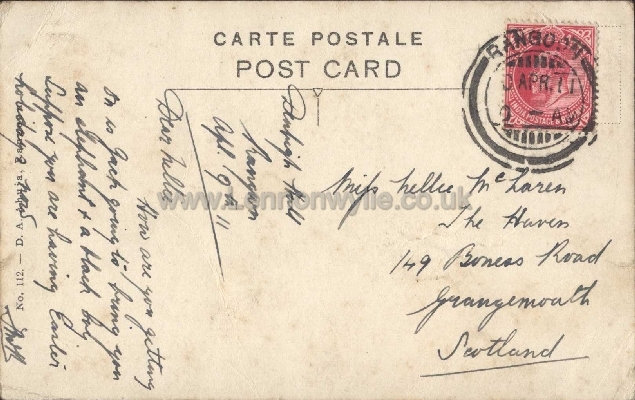 CARTE POSTALE
POST CARD
RANGOON
APR. 11
INDIA POSTAGE
Hall
Rangoon
Apl. 9th 11
Dear Nellie
How are you getting
on is Jack going to bring you
an elephant & a black boy
Suppose you are having Easter
holidays now
Miss Nellie McLaren
The Haven
149 Boness Road
Grangemouth
Scotland
No. 112. — D. A.
www.Lennonwylie.co.uk